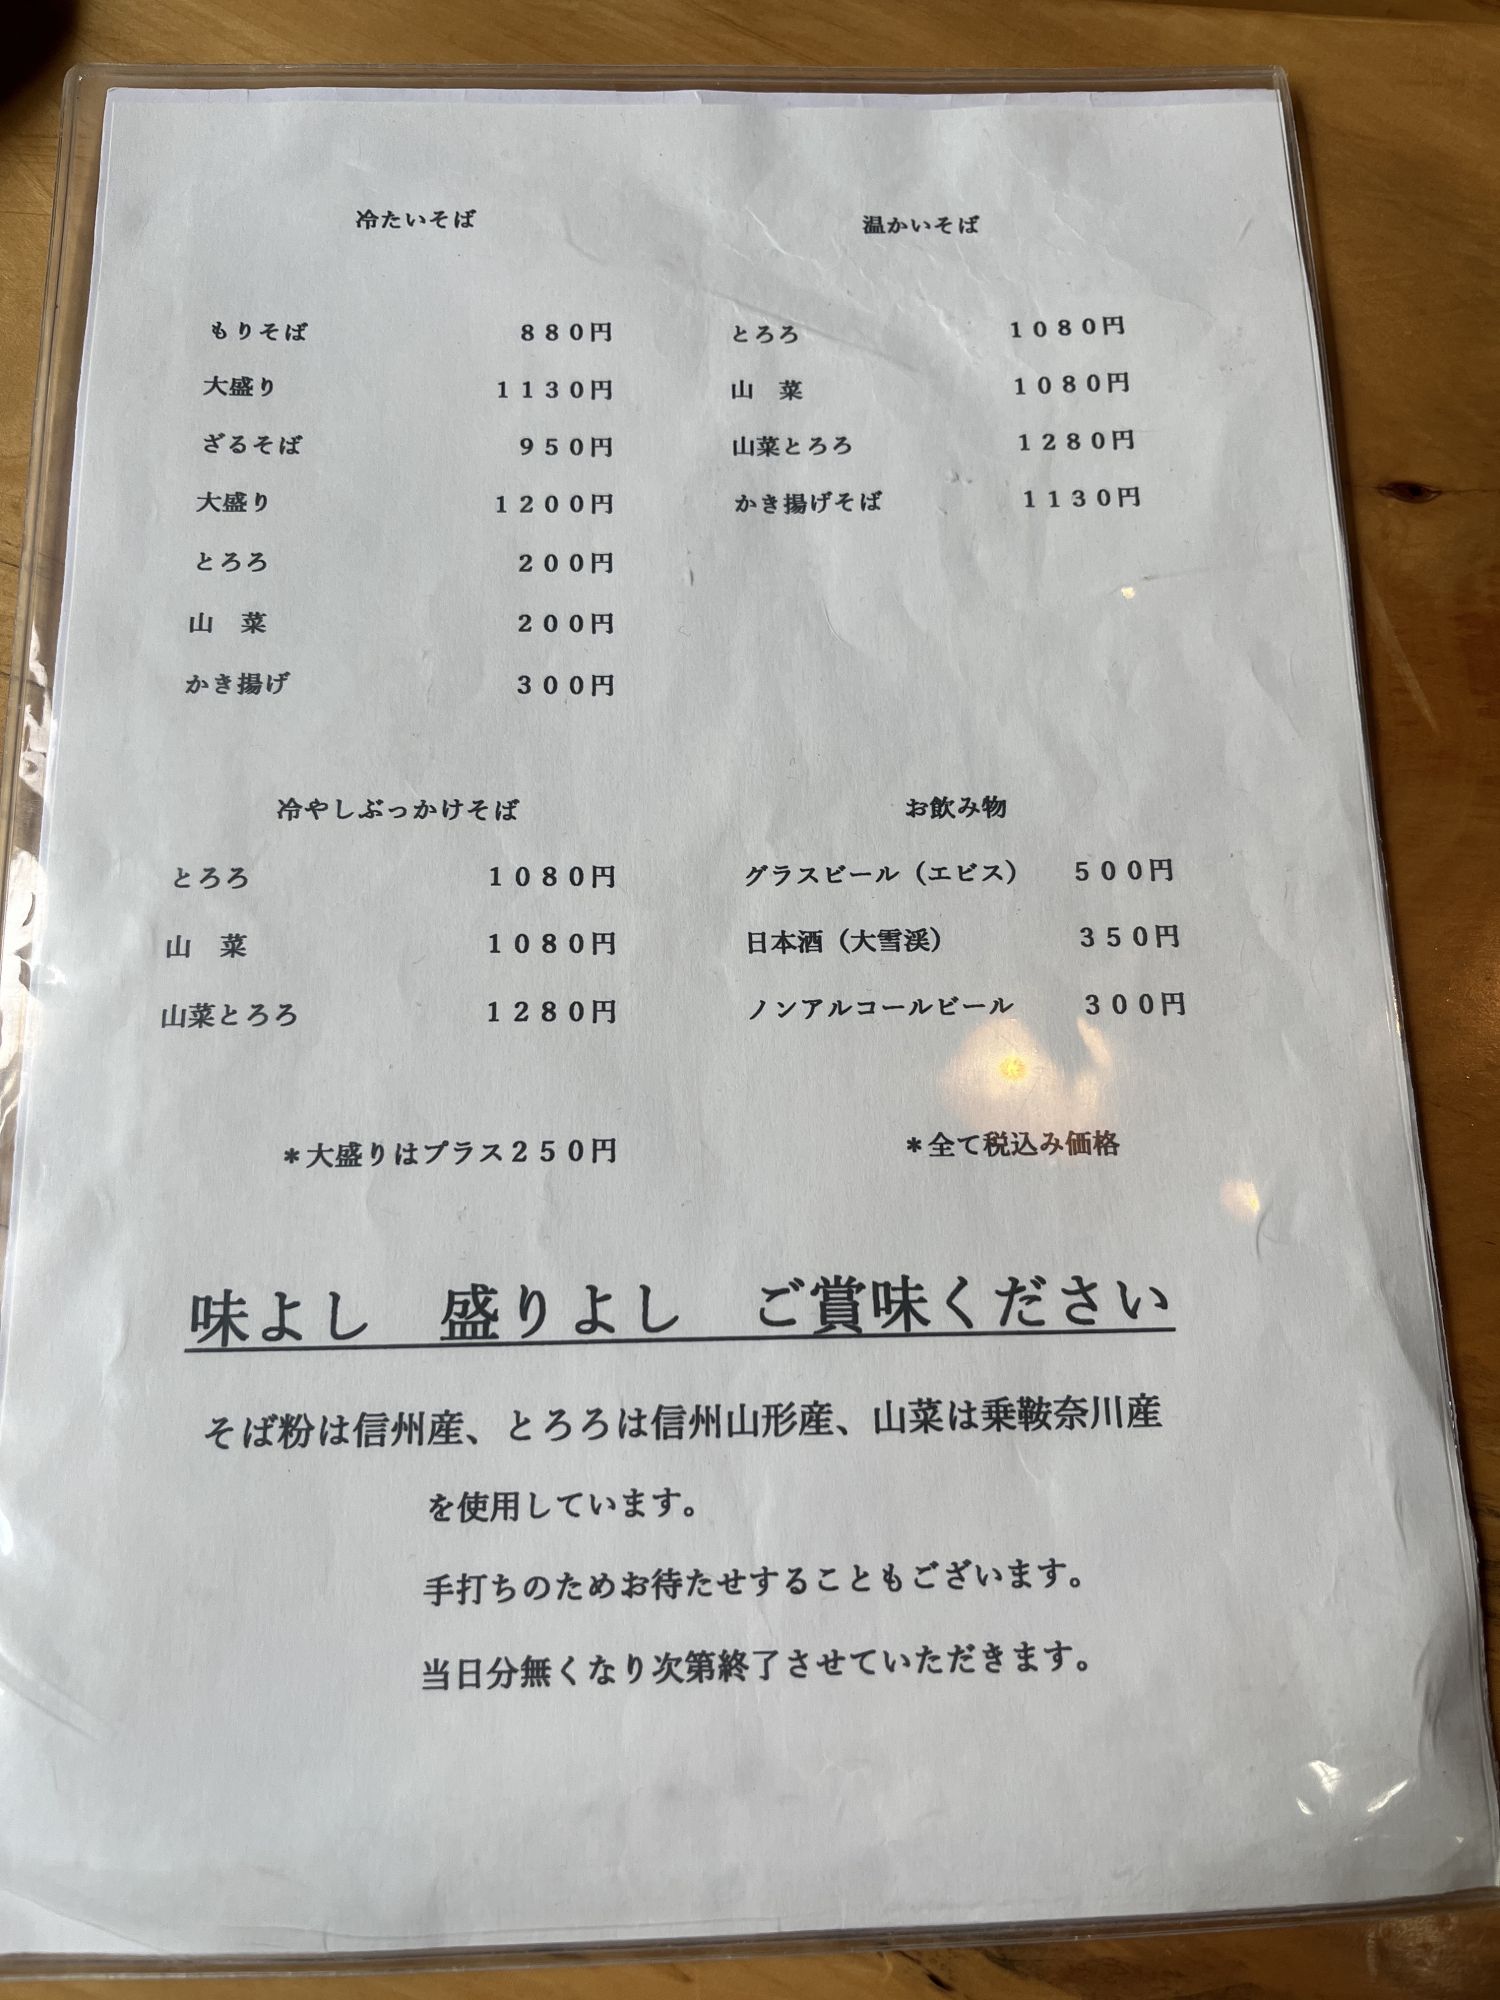 冷たいそば
もりそば　８８０円
大盛り　１１３０円
ざるそば　９５０円
大盛り　１２００円
とろろ　２００円
山　菜　２００円
かき揚げ　３００円
温かいそば
とろろ　１０８０円
山　菜　１０８０円
山菜とろろ　１２８０円
かき揚げそば　１１３０円
冷やしぶっかけそば
とろろ　１０８０円
山　菜　１０８０円
山菜とろろ　１２８０円
＊大盛りはプラス２５０円
お飲み物
グラスビール（エビス）　５００円
日本酒（大雪渓）　３５０円
ノンアルコールビール　３００円
＊全て税込み価格
味よし　盛りよし　ご賞味ください
そば粉は信州産、とろろは信州山形産、山菜は乗鞍奈川産
を使用しています。
手打ちのためお待たせすることもございます。
当日分無くなり次第終了させていただきます。